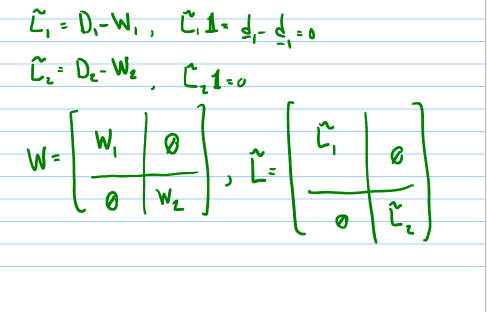 L̃₁ = D₁ - W₁, L̃₁ 1 = d₁ - d₁ = 0
L̃₂ = D₂ - W₂, L̃₂ 1 = 0
W = [ W₁ | 0 ; 0 | W₂ ], L̃ = [ L̃₁ | 0 ; 0 | L̃₂ ]